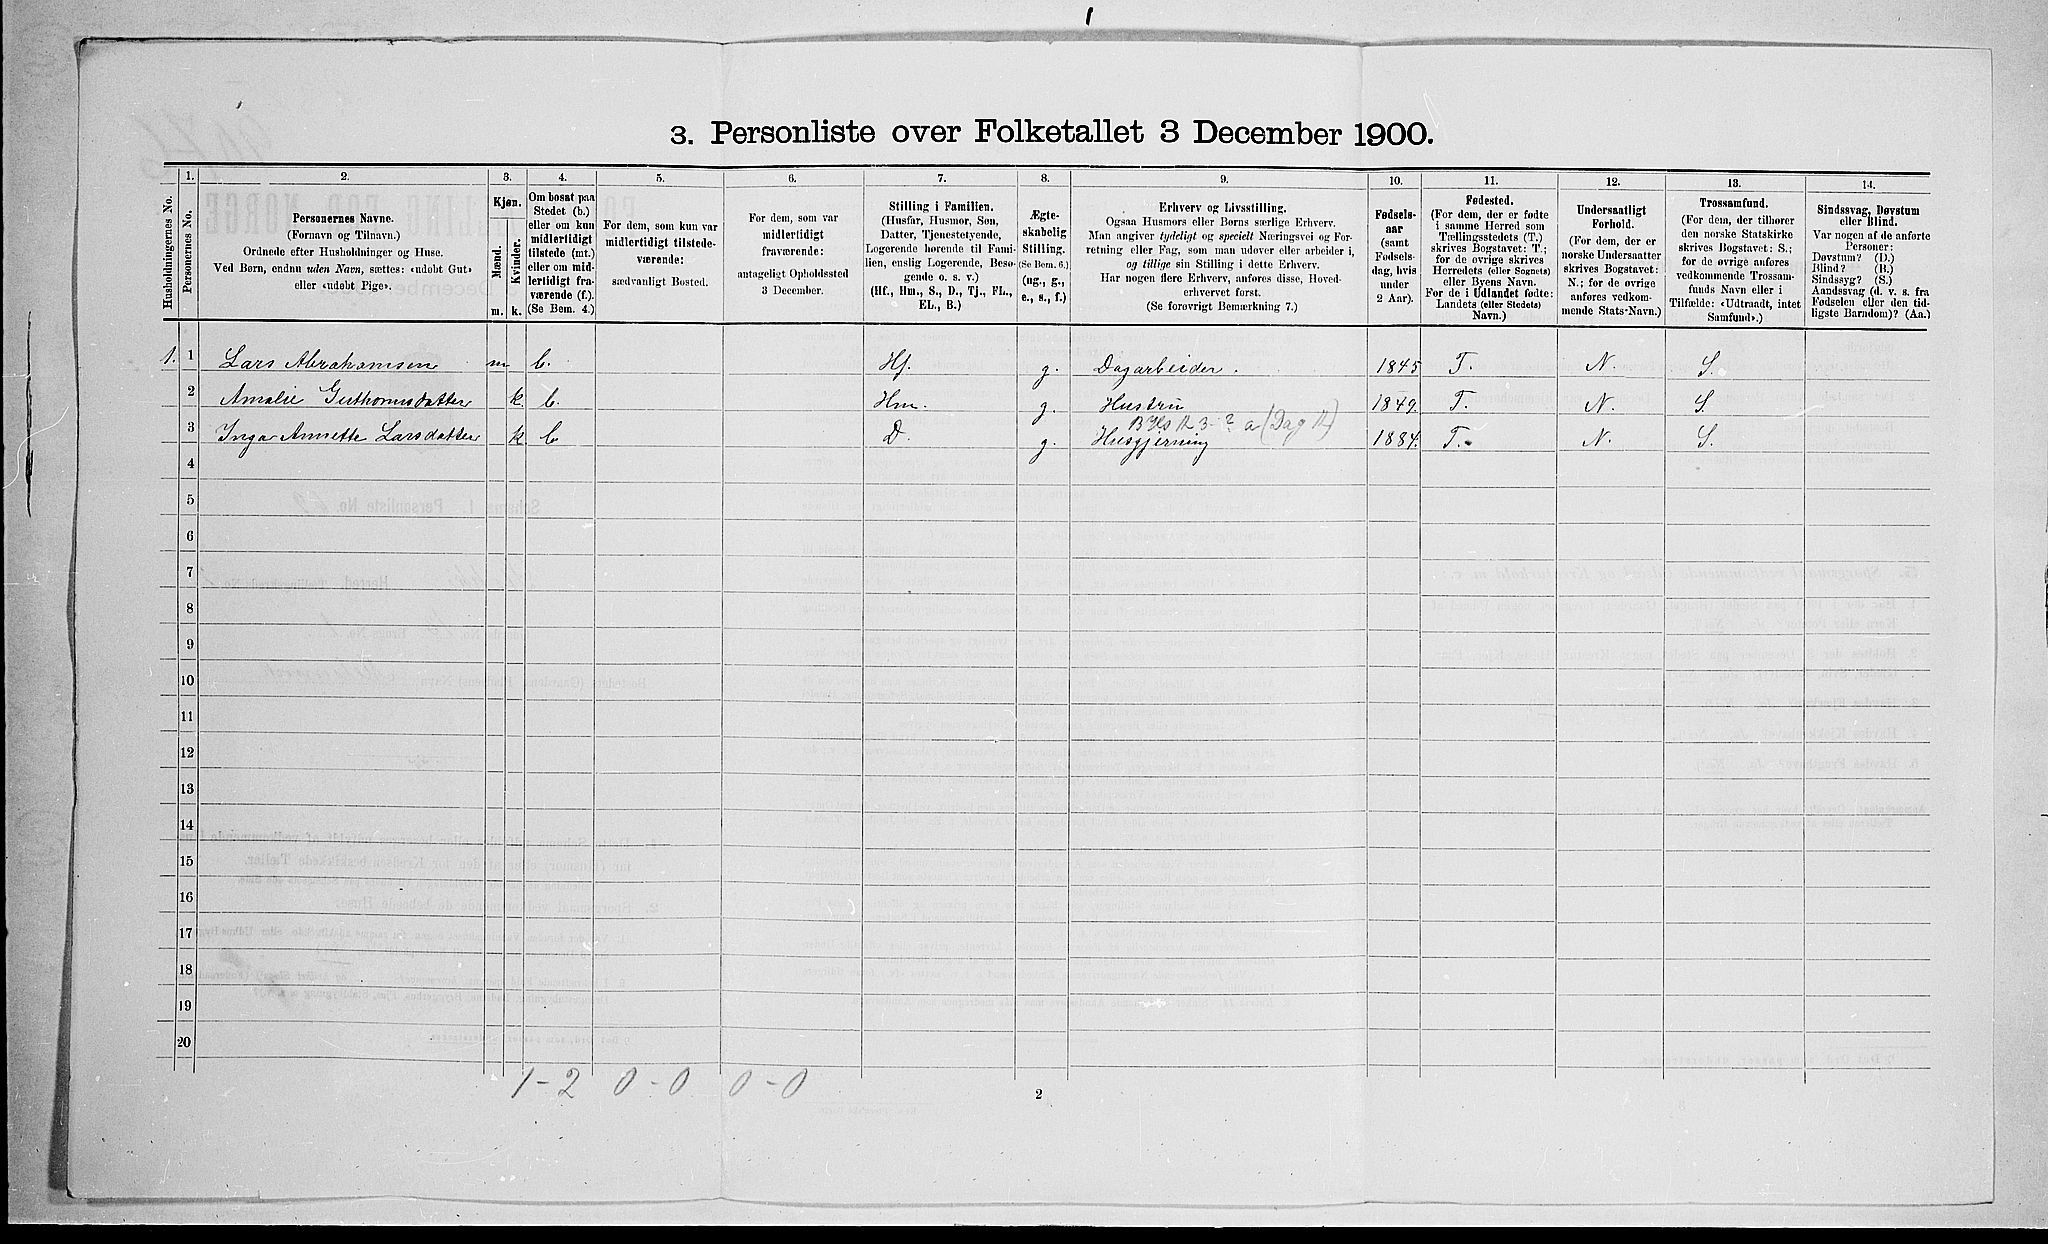 3. Personliste over Folketallet 3 December 1900.
Husholdningernes No.
1.
Personernes No.
2.
Personernes Navne.
(Fornavn og Tilnavn.)
Ordnede efter Husholdninger og Huse.
Ved Børn, endnu uden Navn, sættes: «udøbt Gut»
eller «udøbt Pige».
3.
Kjøn.
Mænd.
Kvinder.
m. k.
4.
Om bosat paa
Stedet (b.)
eller om kun
midlertidigt
tilstede (mt.)
eller om mid-
lertidigt fra-
værende (f.).
(Se Bem. 4.)
5.
For dem, som kun var
midlertidigt tilstede-
værende:
sædvanligt Bosted.
6.
For dem, som var
midlertidigt
fraværende:
antageligt Opholdssted
3 December.
7.
Stilling i Familien.
(Husfar, Husmor, Søn,
Datter, Tjenestetyende,
Logerende hørende til Fami-
lien, enslig Logerende, Besø-
gende o. s. v.)
(Hf., Hm., S., D., Tj., FL.,
EL., B.)
8.
Ægte-
skabelig
Stilling.
(Se Bem. 6.)
(ug., g.,
e., s., f.)
9.
Erhverv og Livsstilling.
Ogsaa Husmors eller Børns særlige Erhverv.
Man angiver tydeligt og specielt Næringsvei og For-
retning eller Fag, som man udøver eller arbeider i,
og tillige sin Stilling i dette Erhverv.
Har nogen flere Erhverv, anføres disse, Hoved-
erhvervet først.
(Se forøvrigt Bemærkning 7.)
10.
Fødsels-
aar
(samt
Fødsels-
dag, hvis
under
2 Aar).
11.
Fødested.
(For dem, der er fødte
i samme Herred som
Tællingsstedets (T.)
skrives Bogstavet: T.;
for de øvrige skrives
Herredets (eller Sognets)
eller Byens Navn.
For de i Udlandet fødte:
Landets (eller Stedets)
Navn.)
12.
Undersaatligt
Forhold.
(For dem, der er
norske Undersaatter
skrives Bogstavet:
N.; for de øvrige
anføres vedkom-
mende Stats-Navn.)
13.
Trossamfund.
(For dem, der tilhører
den norske Statskirke
skrives Bogstavet: S.;
for de øvrige anføres
vedkommende Trossam-
funds Navn eller i
Tilfælde: «Udtraadt, intet
Samfund».)
14.
Sindssvag, Døvstum
eller Blind.
Var nogen af de anførte
Personer:
Døvstum? (D.)
Blind? (B.)
Sindssyg? (S.)
Aandssvag (d. v. s. fra
Fødselen eller den tid-
ligste Barndom)? (Aa.)
1. 1 Lars Abrahamsen m b. Hf. g. Dagarbeider. 1845 T. N. S.
2 Amalie Guthormsdatter k. b. Hm. g. Hustru 1849. T. N. S.
3 Inga Annette Larsdatter k b D. g. Husgjerning 1884. T. N. S.
4
5
6
7
8
9
10
11
12
13
14
15
16
17
18
19
20
1-2 0-0 0-0
2